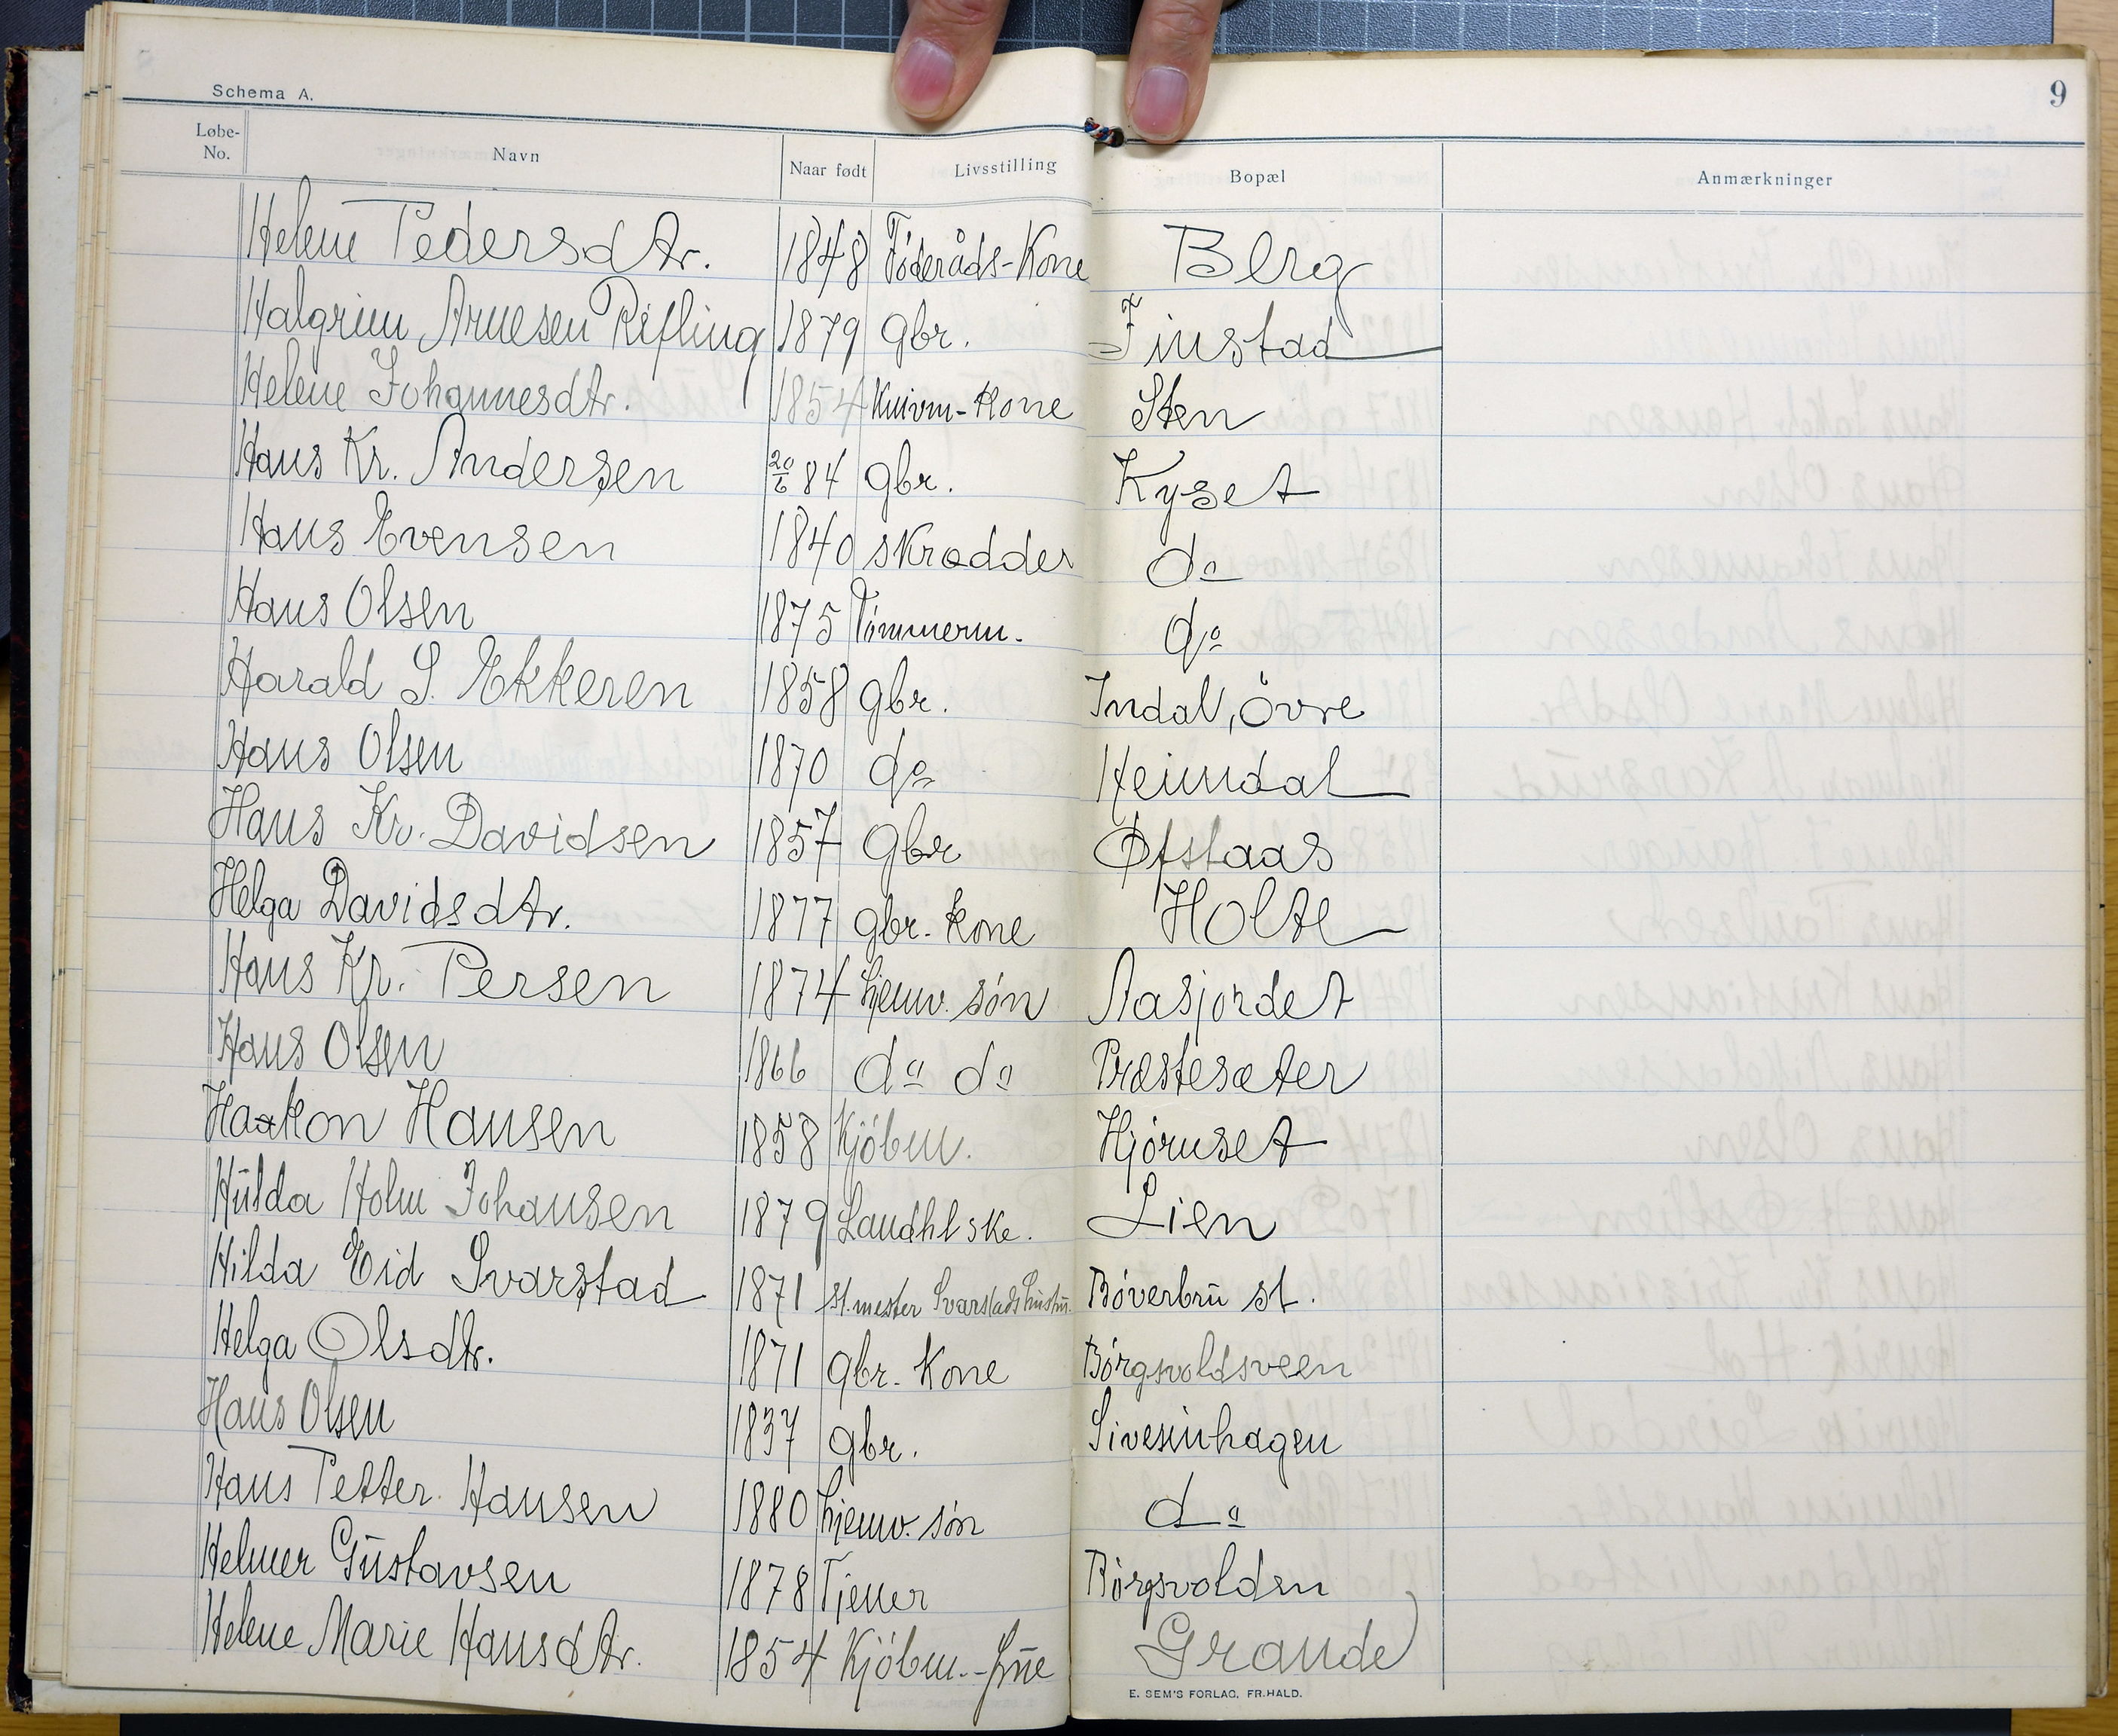 Schema A.
9
Løbe-No. Navn Naar født Livsstilling Bopæl Anmærkninger
Helene Pedersdtr. 1848 Föderåds-Kone Berg
Halgrim Arnesen Rifling 1879 gbr. Finstad
Helene Johannesdtr. 1854 Kone Sten
Hans Kr. Andersen 20/6 84 gbr. Kyset
Hans Evensen 1840 skrædder do
Hans Olsen 1875 Tömmerm. do
Harald S. Ekkeren 1858 gbr. Indal, övre
Hans Olsen 1870 do Heimdal
Hans Kr. Davidsen 1857 Gbr Øfstaas
Helga Davidsdtr. 1877 gbr. kone Holte
Hans Kr. Persen 1874 hjemv. sön Aasjordet
Hans Olsen 1866 do do Præstesæter
Haakon Hansen 1858 Kjöbm. Hjörnset
Hulda Holm Johansen 1879 Landhl ske. Lien
Hilda Eid Svarstad 1871 St.mester Svarstads hustru. Böverbru st.
Helga Olsdtr. 1871 gbr. Kone Börgsvoldsveen
Hans Olsen 1837 gbr. Sivesinhagen
Hans Petter Hansen 1880 hjemv. sön do
Helmer Gustavsen 1878 Tjener Börgsvolden
Helene Marie Hansdtr. 1854 Kjöbm.-frue Grande
E. SEM'S FORLAG, FR.HALD.